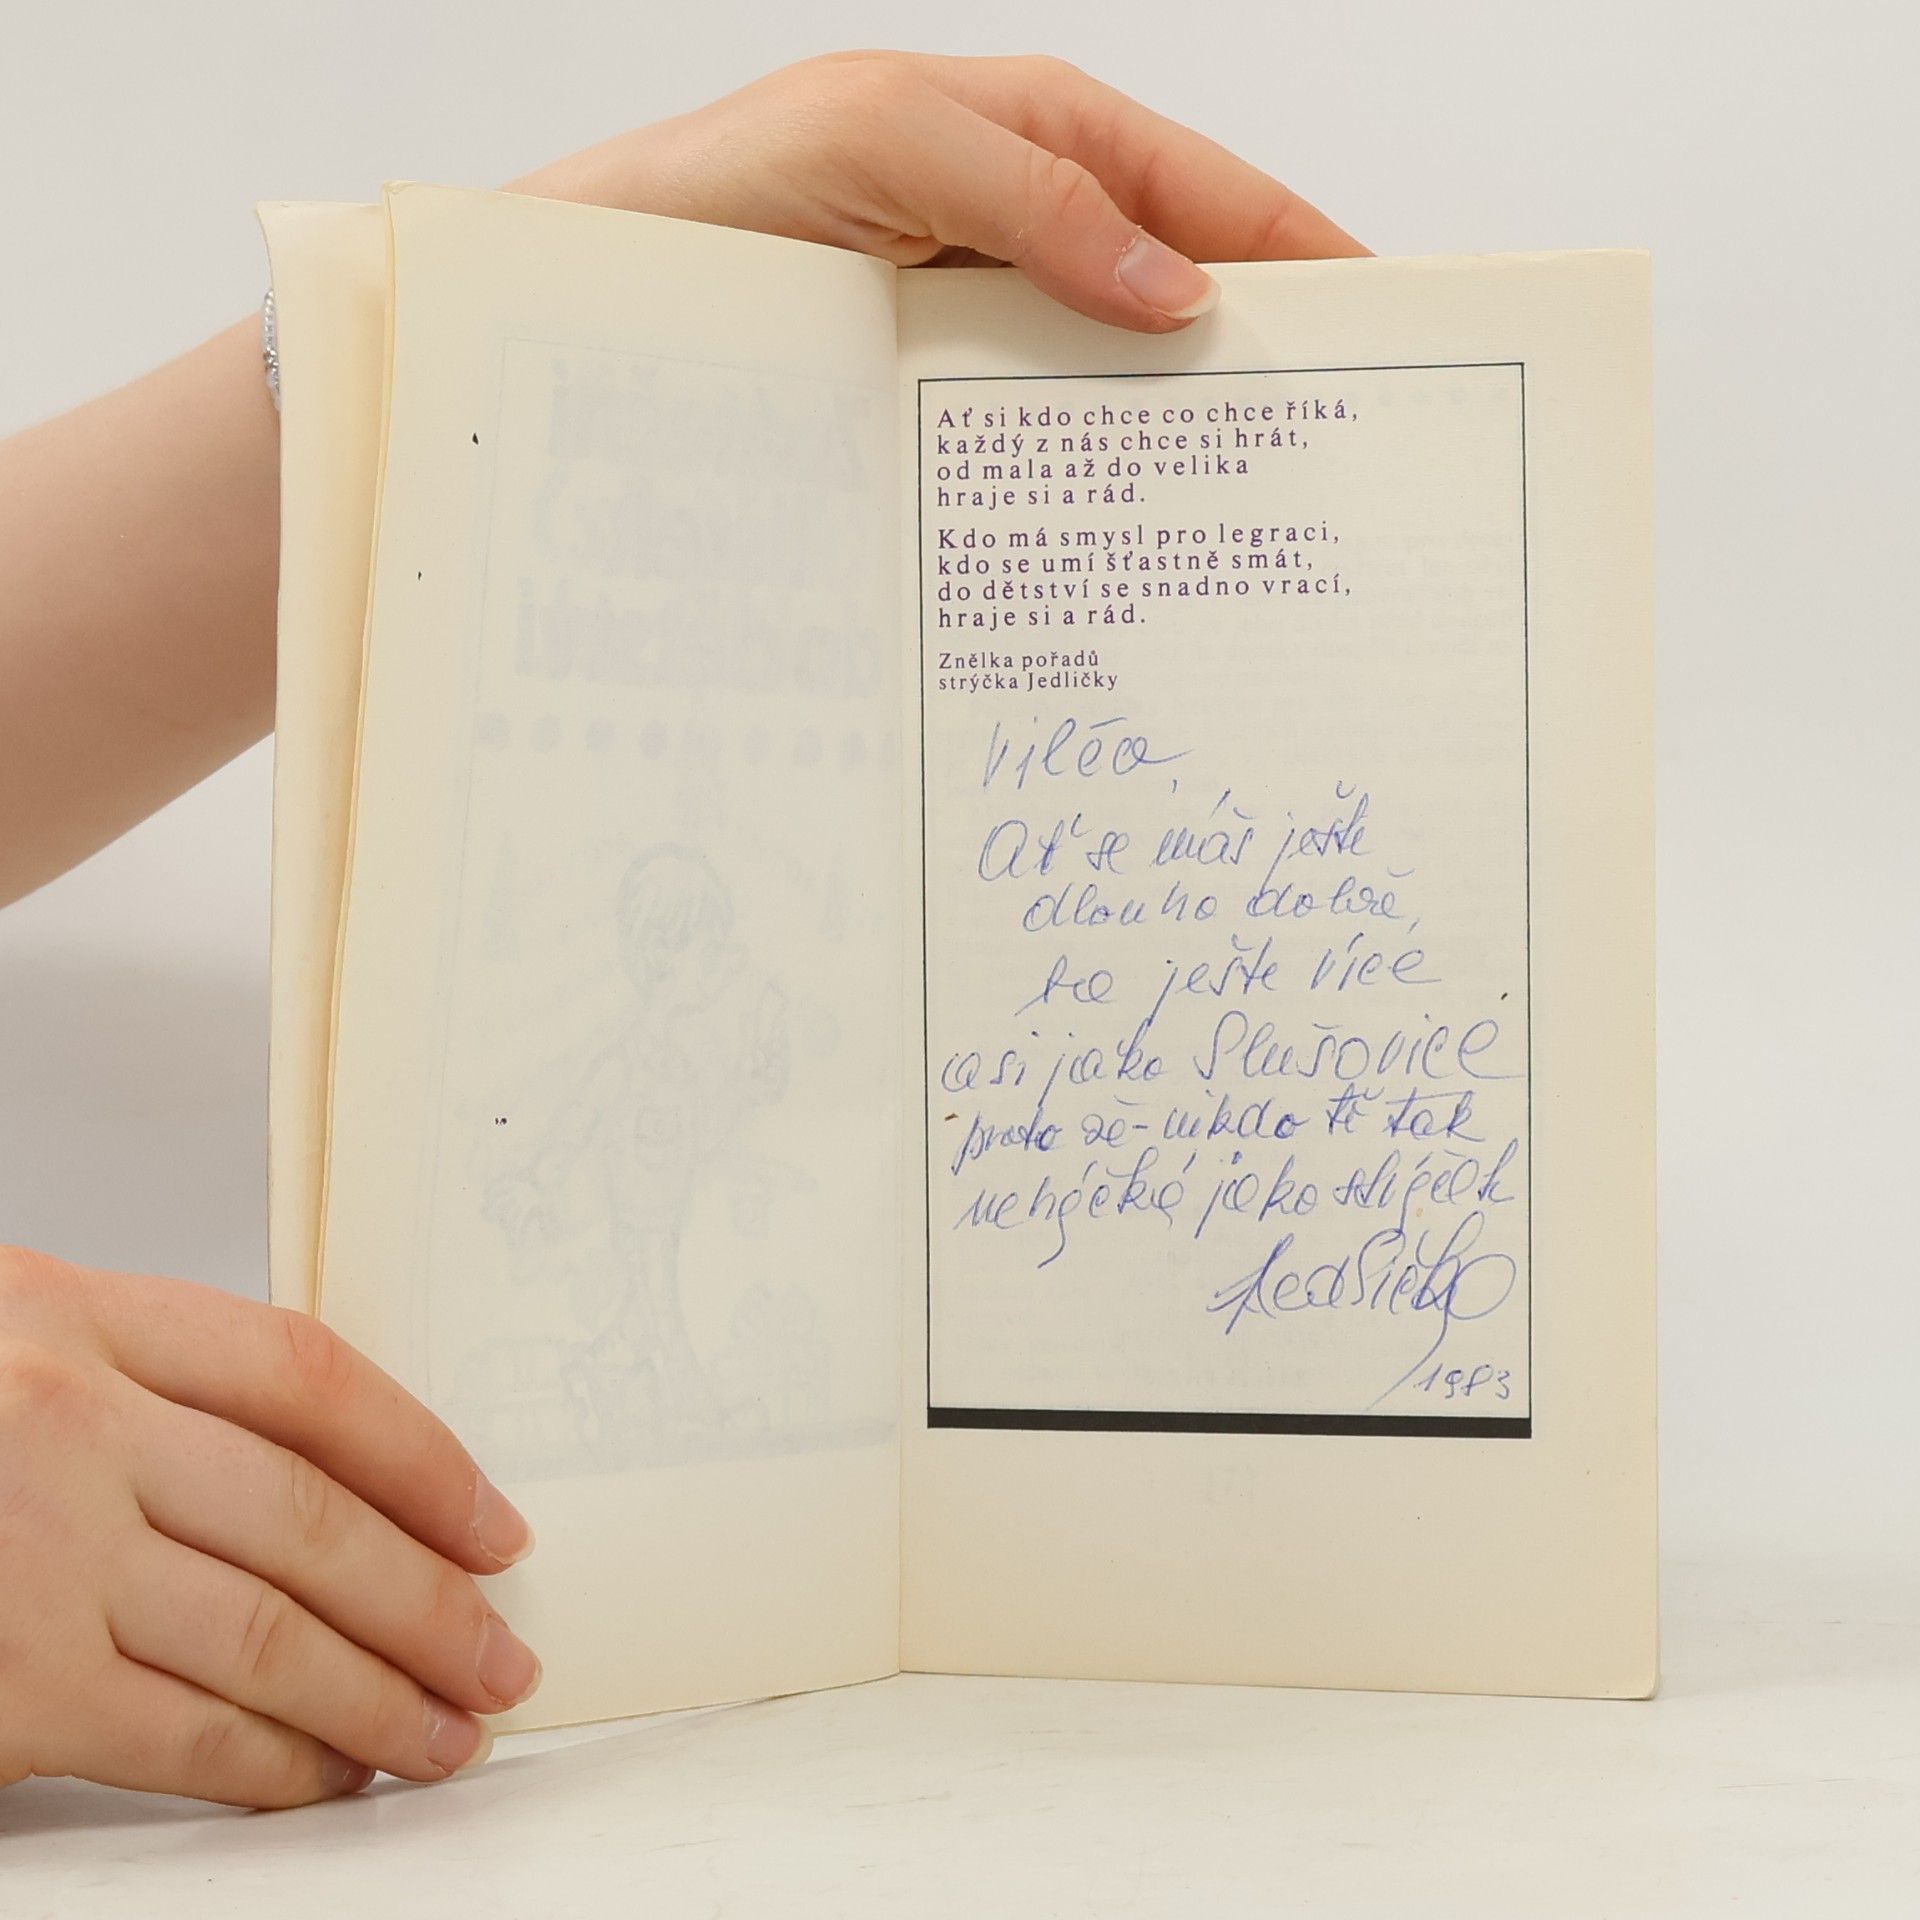 Ať si kdo chce co chce říká,
každý z nás chce si hrát,
od mala až do velika
hraje si a rád.
Kdo má smysl pro legraci,
kdo se umí šťastně smát,
do dětství se snadno vrací,
hraje si a rád.
Znělka pořadů
strýčka Jedličky
Ať se máš ještě
dlouho dobře,
ještě více
asi jako Slušovice
proto že - nikdo tě tak
jako strýček
Jedlička
1983